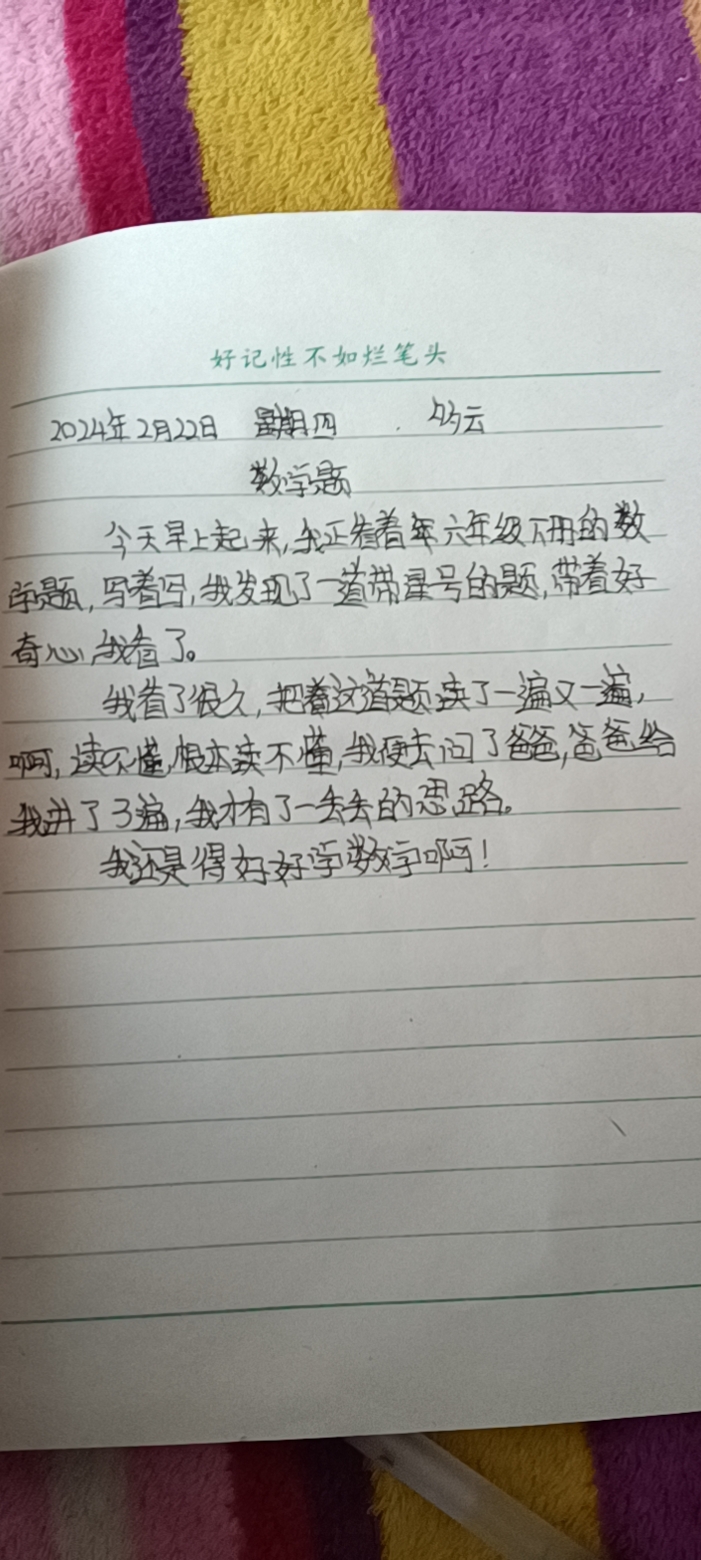 好记性不如烂笔头
2024年2月22日 星期四 多云
数学题
今天早上起来,我正看着年六年级下册的数
学题,写着写,我发现了一道带星号的题,带着好
奇心,我看了。
我看了很久,把着这道题读了一遍又一遍,
啊,读不懂,根本读不懂,我便去问了爸爸,爸爸给
我讲了3遍,我才有了一丢丢的思路。
我还是得好好学数学啊!